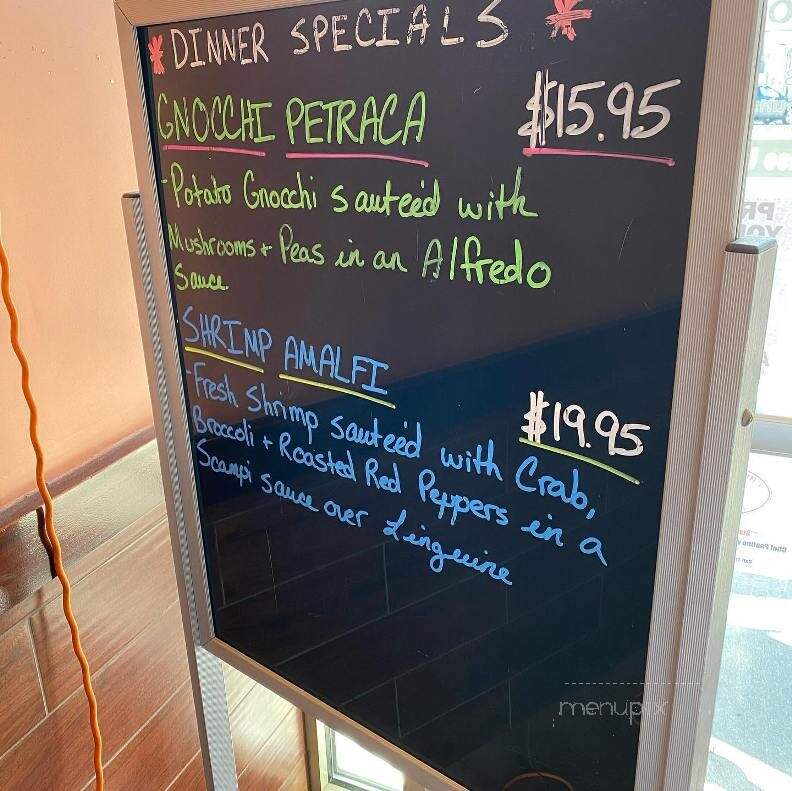 DINNER SPECIALS
GNOCCHI PETRACA $15.95
- Potato Gnocchi sauteéd with
Mushrooms + Peas in an Alfredo
Sauce
SHRIMP AMALFI
$19.95
- Fresh Shrimp sauteéd with Crab,
Broccoli + Roasted Red Peppers in a
Scampi sauce over Linguine
menupix